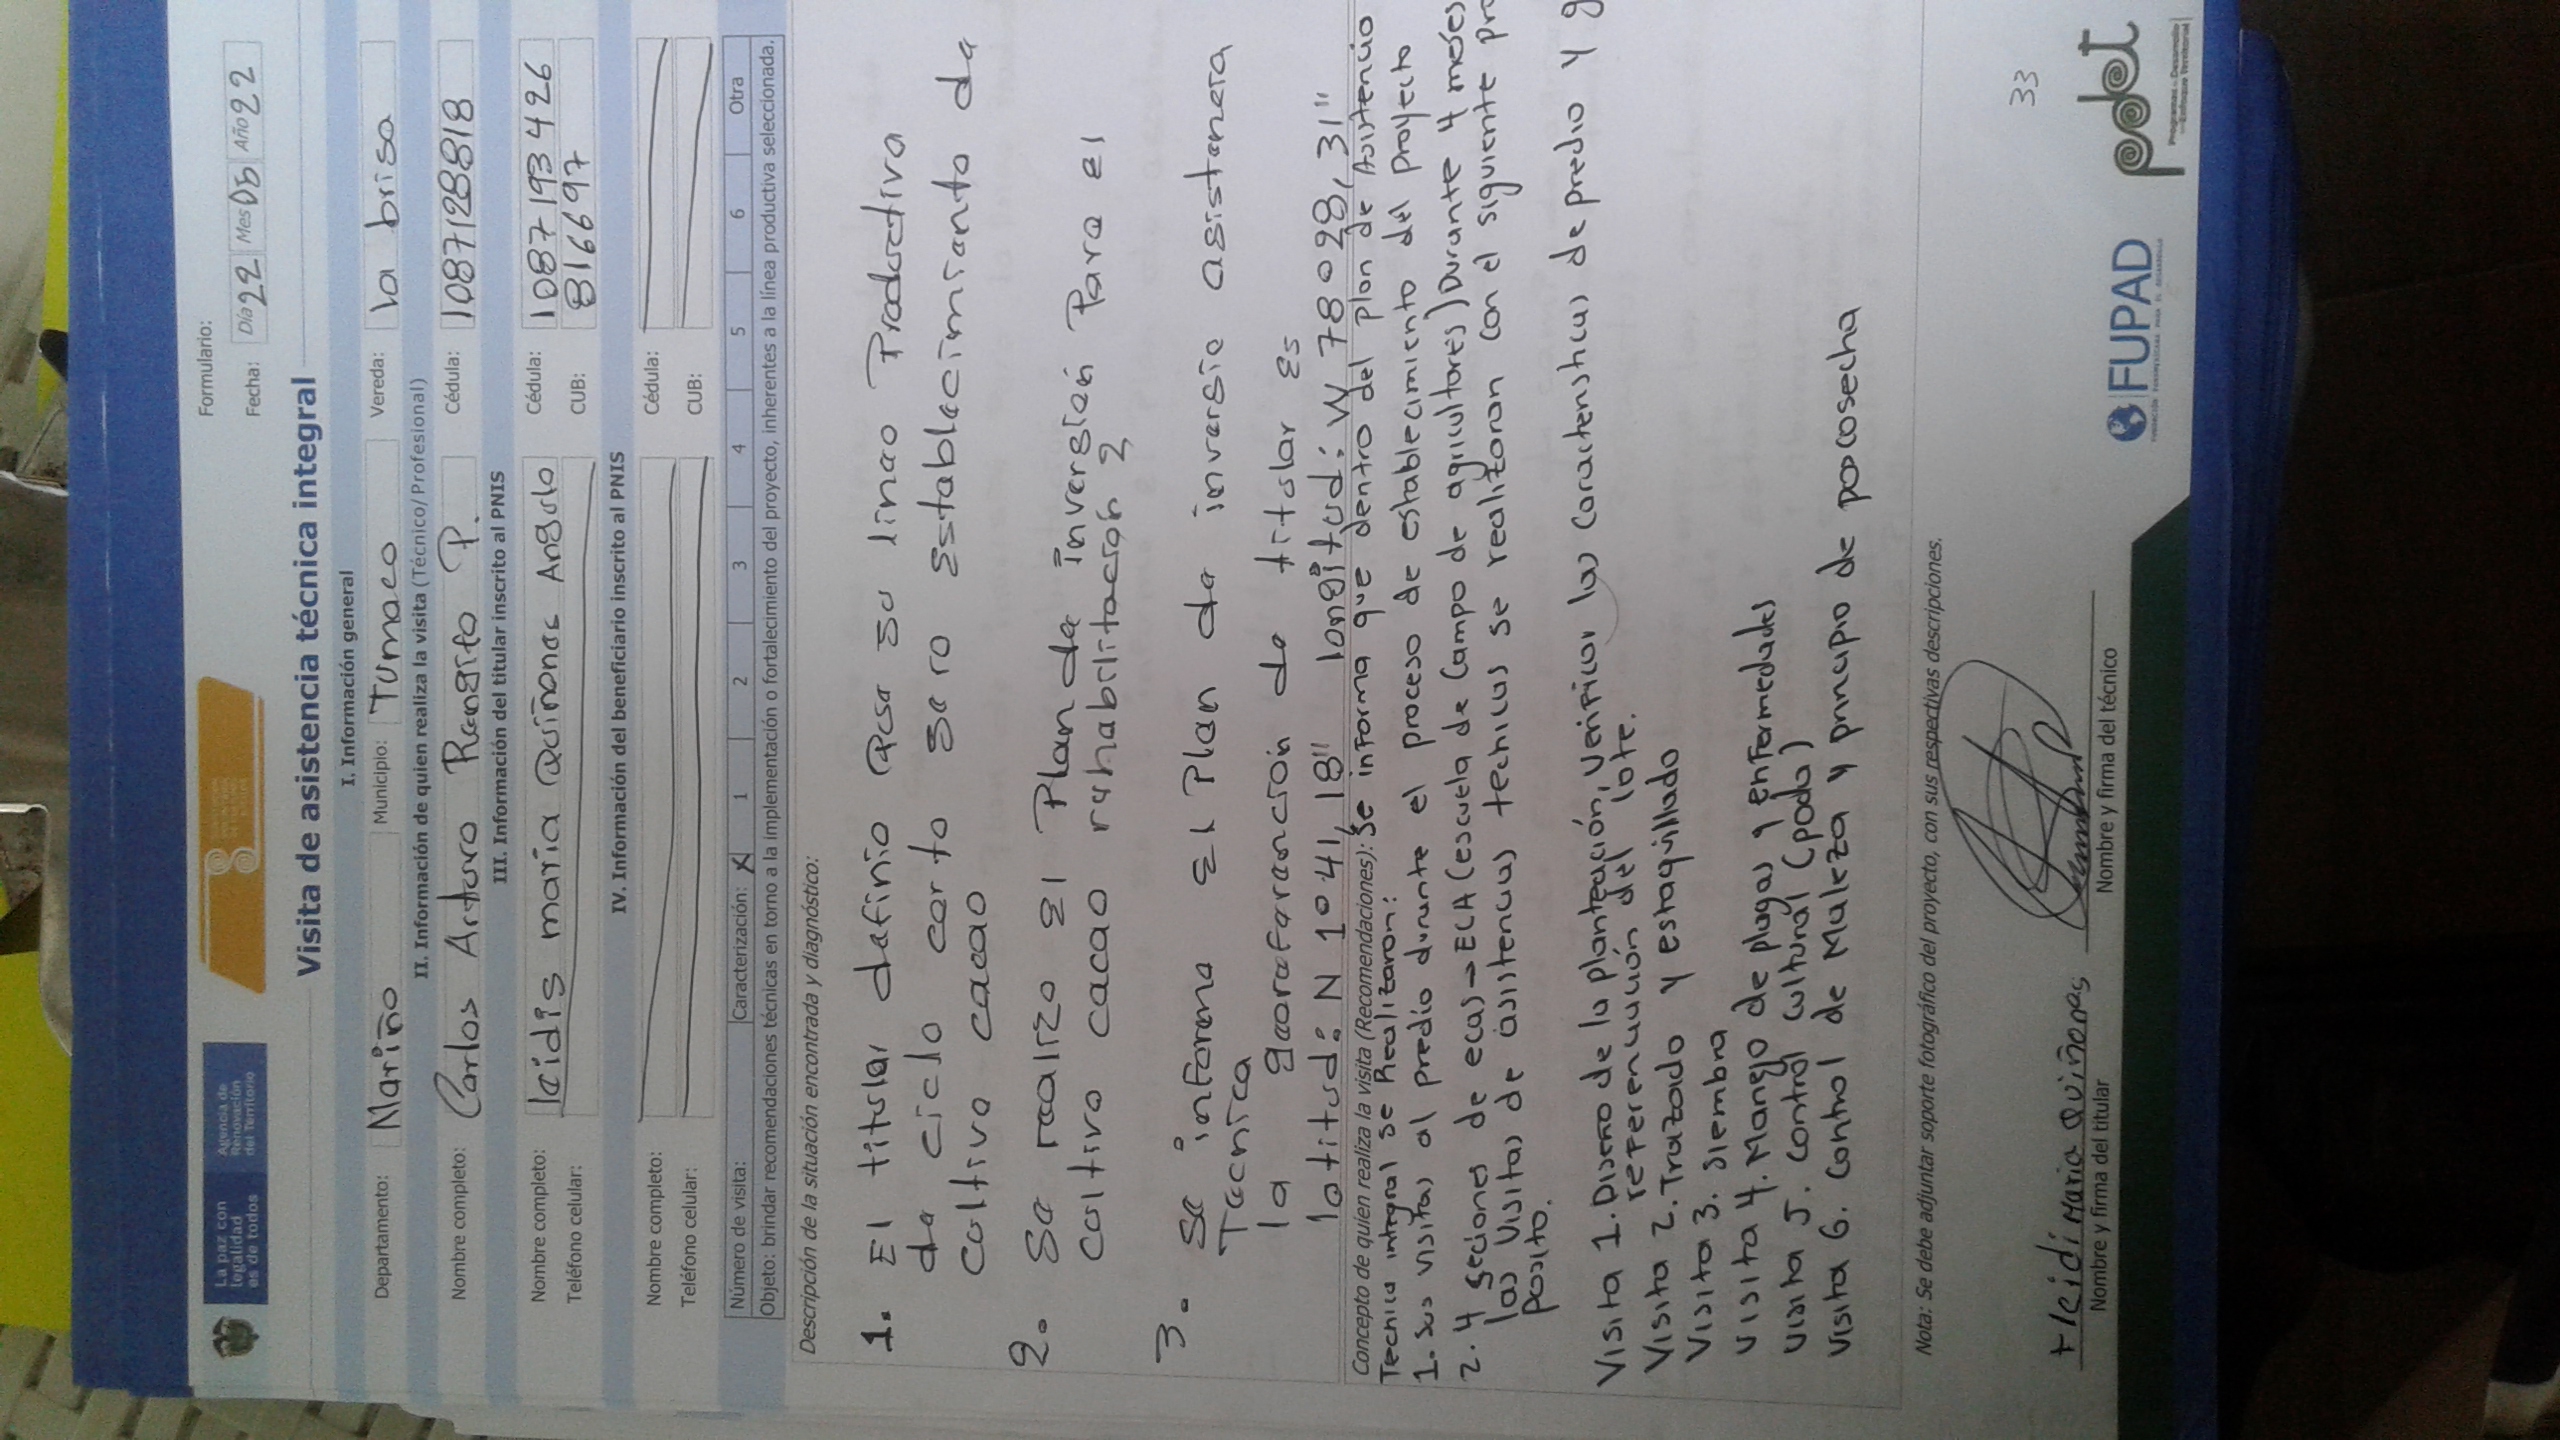 La paz con
legalidad
es de todos
Agencia de
Renovación
del Territorio
Formulario:
Fecha: Día 22 Mes 05 Año 22
Visita de asistencia técnica integral
I. Información general
Departamento: Mariño Municipio: Tumaco Vereda: la brisa
II. Información de quien realiza la visita (Técnico/Profesional)
Nombre completo: Carlos Arturo P. Cédula: 1087128818
III. Información del titular inscrito al PNIS
Nombre completo: leidis maria Quiñones Angulo Cédula: 1087193426
Teléfono celular: CUB: 816697
IV. Información del beneficiario inscrito al PNIS
Nombre completo: Cédula:
Teléfono celular: CUB:
Número de visita: Caracterización: X 1 2 3 4 5 6 Otra
Objeto: brindar recomendaciones técnicas en torno a la implementación o fortalecimiento del proyecto, inherentes a la línea productiva seleccionada.
Descripción de la situación encontrada y diagnóstico:
1. El titular definio que su linea Productiva
de ciclo corto sero establecimiento de
cultivo cacao
2. Se realizo el Plan de inversión Para el
cultivo cacao rehabilitación 2
3. Se informa el Plan de inversio asistencia
Tecnica
la georeferención de titular es
latitud: N 1041,18" longitud: W 78028,31"
Concepto de quien realiza la visita (Recomendaciones): Se informa que dentro del plan de Asistencia
Tecnica integral se Realizaron:
1. sus visitas al predio durante el proceso de establecimiento del proyecto
2. 4 seciones de ecas→ECA (escuela de Campo de agricultores) Durante 4 meses
las visitas de asistencias technicas se realizaron con el siguiente pro
posito.
Visita 1. Diseño de la planteación, Verificar las caracteristicas de predio y g
referenciación del lote.
Visita 2. Trazado y estaquillado
Visita 3. siembra
Visita 4. Manejo de plagas y enfermedades
Visita 5. Control cultural (poda)
Visita 6. Control de Maleza y principio de poscosecha
Nota: Se debe adjuntar soporte fotográfico del proyecto, con sus respectivas descripciones.
leidi Maria Quiñones
Nombre y firma del titular
Nombre y firma del técnico
33
FUPAD
FUNDACIÓN PANAMERICANA PARA EL DESARROLLO
pdet
Programas de Desarrollo
con Enfoque Territorial